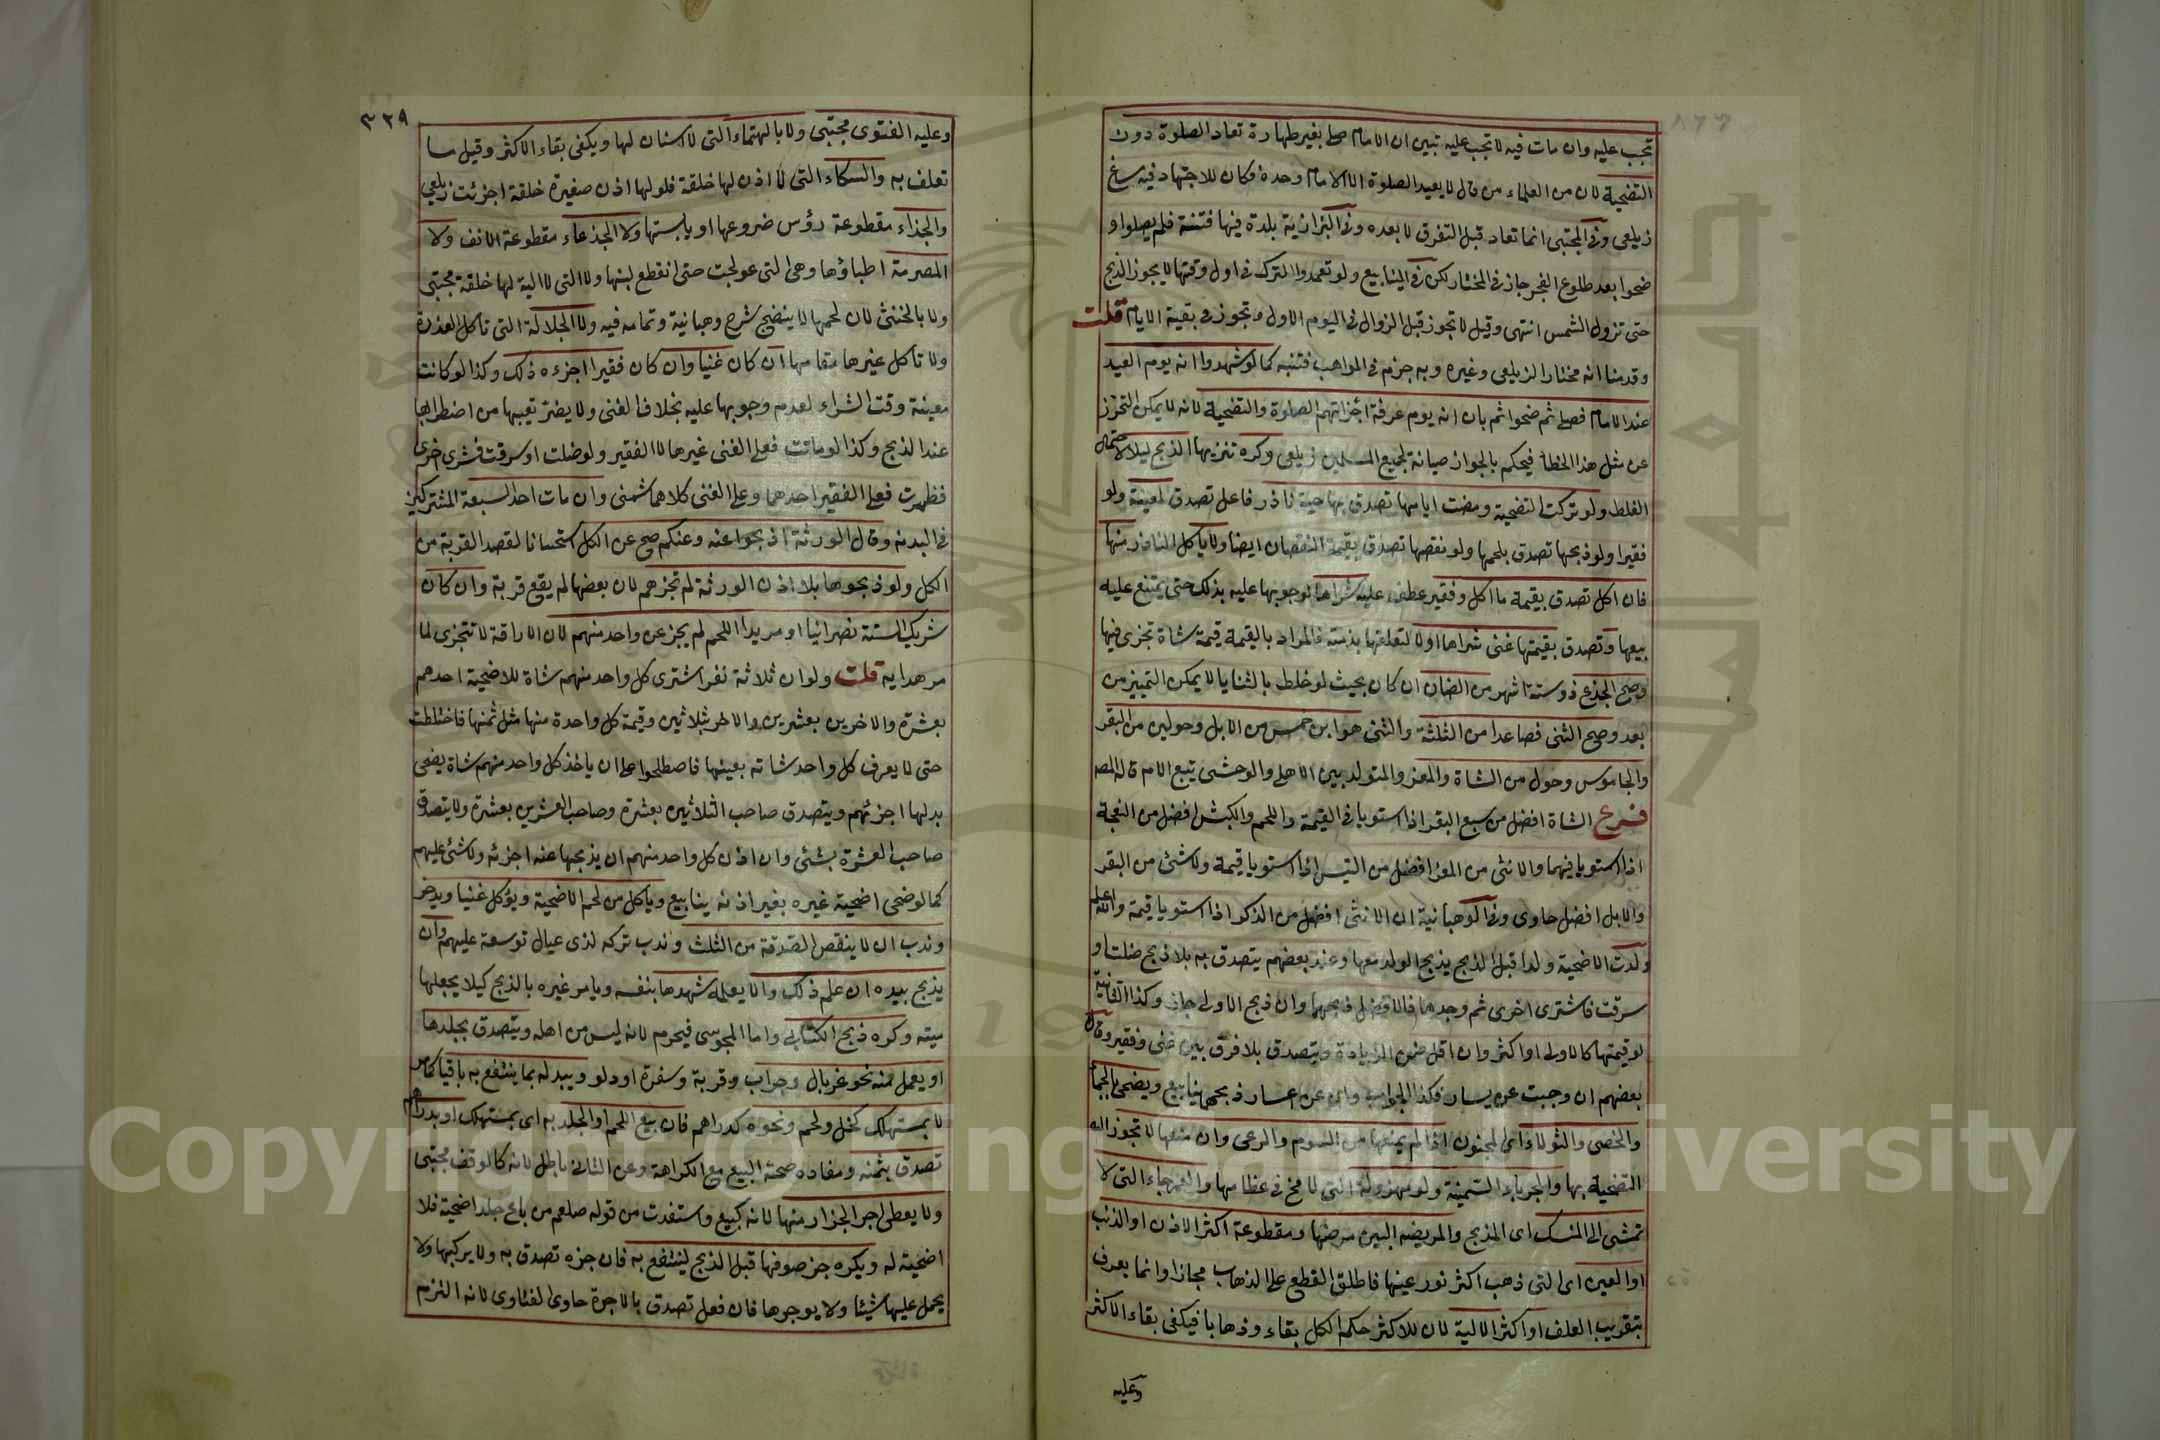 تجب عليه وان مات فيه لا تجب عليه تبين ان الامام صلى بغير طهارة تعاد الصلوة دون
التضحية لان من العلماء من قال لا يعيد الصلوة الا الامام وحده فكان للاجتهاد فيه مساغ
زيلعى وفى المجتبى انما تعاد قبل التفرق لا بعده وفى البزازية بلدة فيها فتنة فلم يصلوا و
ضحوا بعد طلوع الفجر جاز فى المختار لكن فى الينابيع ولو تعمدوا الترك فى اول وقتها لا يجوز الذبح
حتى تزول الشمس انتهى وقيل لا تجوز قبل الزوال فى اليوم الاول وتجوز فى بقية الايام قلت
وقدمنا انه مختار الزيلعى وغيره وبه جزم فى المواهب فتنبه كما لو شهدوا انه يوم العيد
عند الامام فصلى ثم ضحوا ثم بان انه يوم عرفة اجزاتهم الصلوة والتضحية لانه لا يمكن التحرز
عن مثل هذا الخطأ فيحكم بالجواز صيانة لجميع المسلمين زيلعى وكره تنزيها الذبح ليلا لاحتمال
الغلط ولو تركت التضحية ومضت ايامها تصدق بها حية ناذر فاعل تصدق لمعينة ولو
فقيرا ولو ذبحها تصدق بلحمها ولو نقصها تصدق بقيمة النقصان ايضا ولا ياكل الناذر منها
فان اكل تصدق بقيمة ما اكل وفقير عطف عليه شراها لوجوبها عليه بذلك حتى يمتنع عليه
بيعها وتصدق بقيمتها غنى شراها اولا لتعلقها بذمته فالمراد بالقيمة قيمة شاة تجزى فيها
وصح الجذع ذو ستة اشهر من الضان ان كان بحيث لو خلط بالثنايا لا يمكن التمييز من
بعد وصح الثنى فصاعدا من الثلثة والثنى هو ابن خمس من الابل وحولين من البقر
والجاموس وحول من الشاة والمعز والمتولد بين الاهلى والوحشى يتبع الام قاله المص
فرع الشاة افضل من سبع البقر اذا استويا فى القيمة واللحم والكبش افضل من النعجة
اذا استويا فيهما والانثى من المعز افضل من التيس اذا استويا قيمة ولا شئ من البقر
والابل افضل حاوى وفى الوهبانية ان الانثى افضل من الذكر اذا استويا قيمة والله اعلم
ولدت الاضحية ولدا قبل الذبح يذبح الولد معها وعند بعضهم يتصدق به بلا ذبح ضلت او
سرقت فاشترى اخرى ثم وجدها فالافضل ذبحهما وان ذبح الاولى جاز وكذا الثانية
لو قيمتها كالاولى او اكثر وان اقل ضمن الزيادة ويتصدق بلا فرق بين غنى وفقير وقال
بعضهم ان وجبت عن يسار فكذا الجواب وان عن اعسار ذبحهما ينابيع ويضحى بالجماء
والخصى والثولاء اى المجنون اذا لم يمنعها من السوم والرعى وان منعها لا تجوز اله
التضحية بها والجرباء السمينة ولو مهزولة التى لا مخ فى عظامها والعرجاء التى لا
تمشى الى المنسك اى المذبح والمريضه البين مرضها ومقطوعة اكثر الاذن او الذنب
او العين اى التى ذهب اكثر نور عينها فاطلق القطع على الذهاب مجازا وانما يعرف
بتقريب العلف او اكثر الالية لان للاكثر حكم الكل بقاء وذهابا فيكفى بقاء الاكثر
وعليه
٣٢٩
وعليه الفتوى مجتبى ولا بالهتماء التى لا اسنان لها ويكفى بقاء الاكثر وقيل ما
تعلف به والسكاء التى لا اذن لها خلقة فلو لها اذن صغيرة خلقة اجزئت زيلعى
والجذاء مقطوعة رؤس ضروعها او يابستها ولا الجذعاء مقطوعة الانف ولا
المصرمة اطباؤها وهى التى عولجت حتى انقطع لبنها ولا التى لا الية لها خلقة مجتبى
ولا بالخنثى لان لحمها لا ينضج شرح وهبانية وتمامه فيه ولا الجلالة التى تاكل العذرة
ولا تاكل غيرها مقامها ان كان غنيا وان كان فقيرا اجزءه ذلك وكذا لو كانت
معيبة وقت الشراء لعدم وجوبها عليه بخلاف الغنى ولا يضر تعيبها من اضطرابها
عند الذبح وكذا لو ماتت فعلى الغنى غيرها لا الفقير ولو ضلت او سرقت فشرى اخرى
فظهرت فعلى الفقير احدهما وعلى الغنى كلاهما شمنى وان مات احد السبعة المشتركين
فى البدنه وقال الورثة اذبحوا عنه وعنكم صح عن الكل استحسانا لقصد القربة من
الكل ولو ذبحوها بلا اذن الورثة لم تجزهم لان بعضها لم يقع قربة وان كان
شريك الستة نصرانيا او مريدا اللحم لم يجز عن واحد منهم لان الاراقة لا تتجزى لما
مر هدايه قلت ولو ان ثلاثة نفر اشترى كل واحد منهم شاة للاضحية احدهم
بعشرة والاخرين بعشرين والاخر بثلاثين وقيمة كل واحدة منها مثل ثمنها فاختلطت
حتى لا يعرف كل واحد شاته بعينها فاصطلحوا على ان ياخذ كل واحد منهم شاة يضحى
بدلها اجزئهم ويتصدق صاحب الثلاثين بعشرة وصاحب العشرين بعشرة ولا يتصدق
صاحب العشرة بشئى وان اذن كل واحد منهم ان يذبحها عنه اجزئه ولا شئى عليهم
كما لو ضحى اضحية غيره بغير اذنه ينابيع وياكل من لحم الاضحية ويؤكل غنيا ويدخر
وندب ان لا ينقص الصدقة من الثلث وندب تركه لذى عيال توسعة عليهم وان
يذبح بيده ان علم ذلك والا يعلمه شهدها بنفسه ويامر غيره بالذبح كيلا يجعلها
ميته وكره ذبح الكتابى واما المجوسى فيحرم لانه ليس من اهله ويتصدق بجلدها
او يعمل منه نحو غربال وجراب وقربة وسفرة او دلو ويبدله بما ينتفع به باقيا كما مر
لا بمستهلك كخل ولحم ونحوه كدراهم فان بيع اللحم او الجلد به اى بمستهلك او بدراهم
تصدق بثمنه ومفاده صحة البيع مع الكراهة وعن الثانى باطل لانه كالوقف مجتبى
ولا يعطى اجر الجزار منها لانه كبيع واستفدت من قوله صلعم من باع جلد اضحية فلا
اضحية له ويكره جز صوفها قبل الذبح لينتفع به فان جزه تصدق به ولا يركبها ولا
يحمل عليها شيئا ولا يوجرها فان فعل تصدق بالاجرة حاوى الفتاوى لانه التزم
Copyright © King Saud University